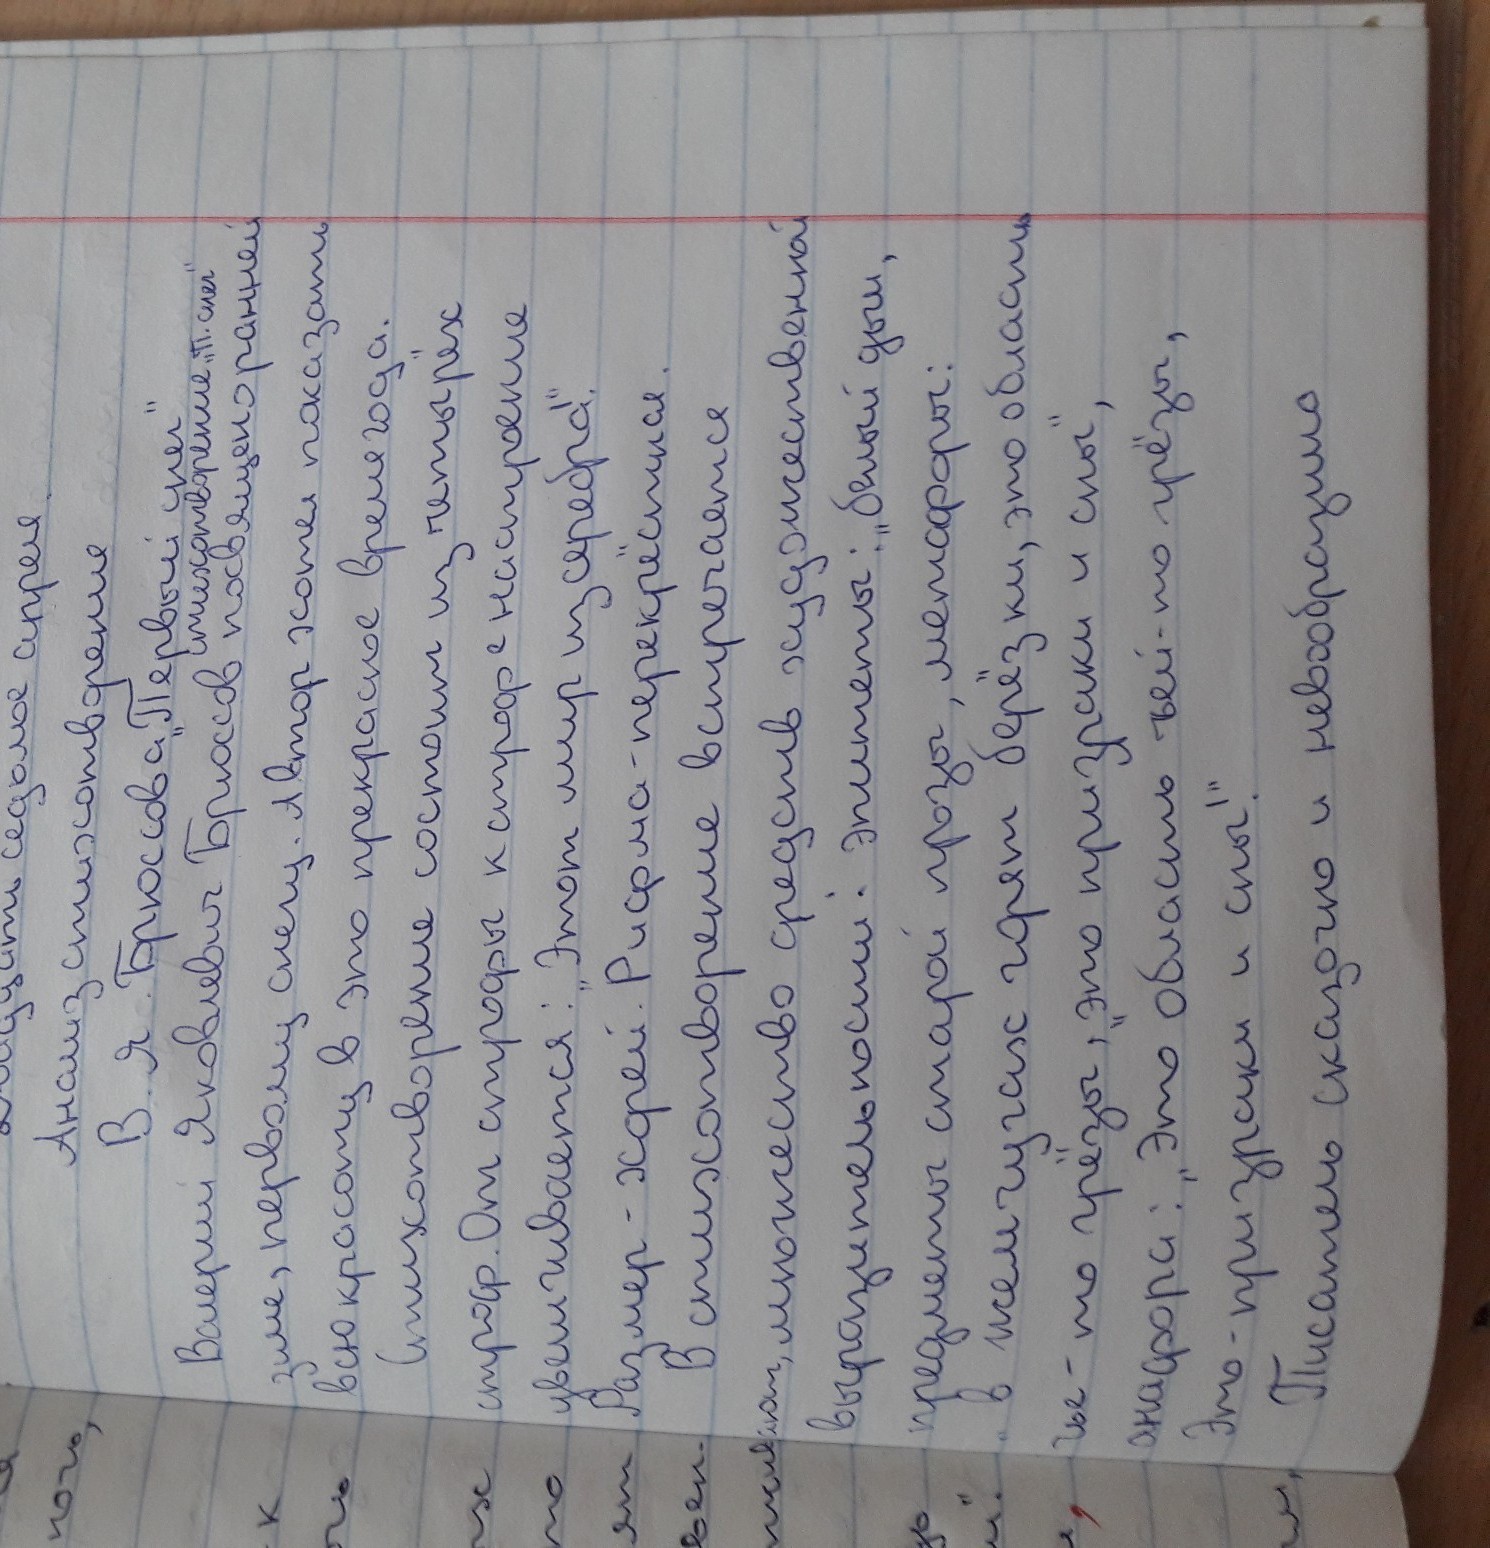 седьмое апреля
Анализ стихотворение
В. Я. Брюсова „Первый снег"
стихотворение „П. снег"
Валерий Яковлевич Брюсов посвящено ранней
зиме, первому снегу. Автор хотел показать
всю красоту в это прекрасное время года.
Стихотворение состоит из четырёх
строф. От строфы к строфе настроение
увеличивается: „Этот мир из серебра!"
Размер - хорей. Рифма - перекрёстная.
В стихотворение встречается
множество средств художественной
выразительности: эпитеты: „белый дым,
предметы старой прозы, метафоры:
„в жемчугах горят берёзки, это область
чье-то грёзы", „это призраки и сны",
анафора: „Это область чьей-то грёзы,
Это - призраки и сны!"
Писатель сказочно и невообразимо
ночь,
к